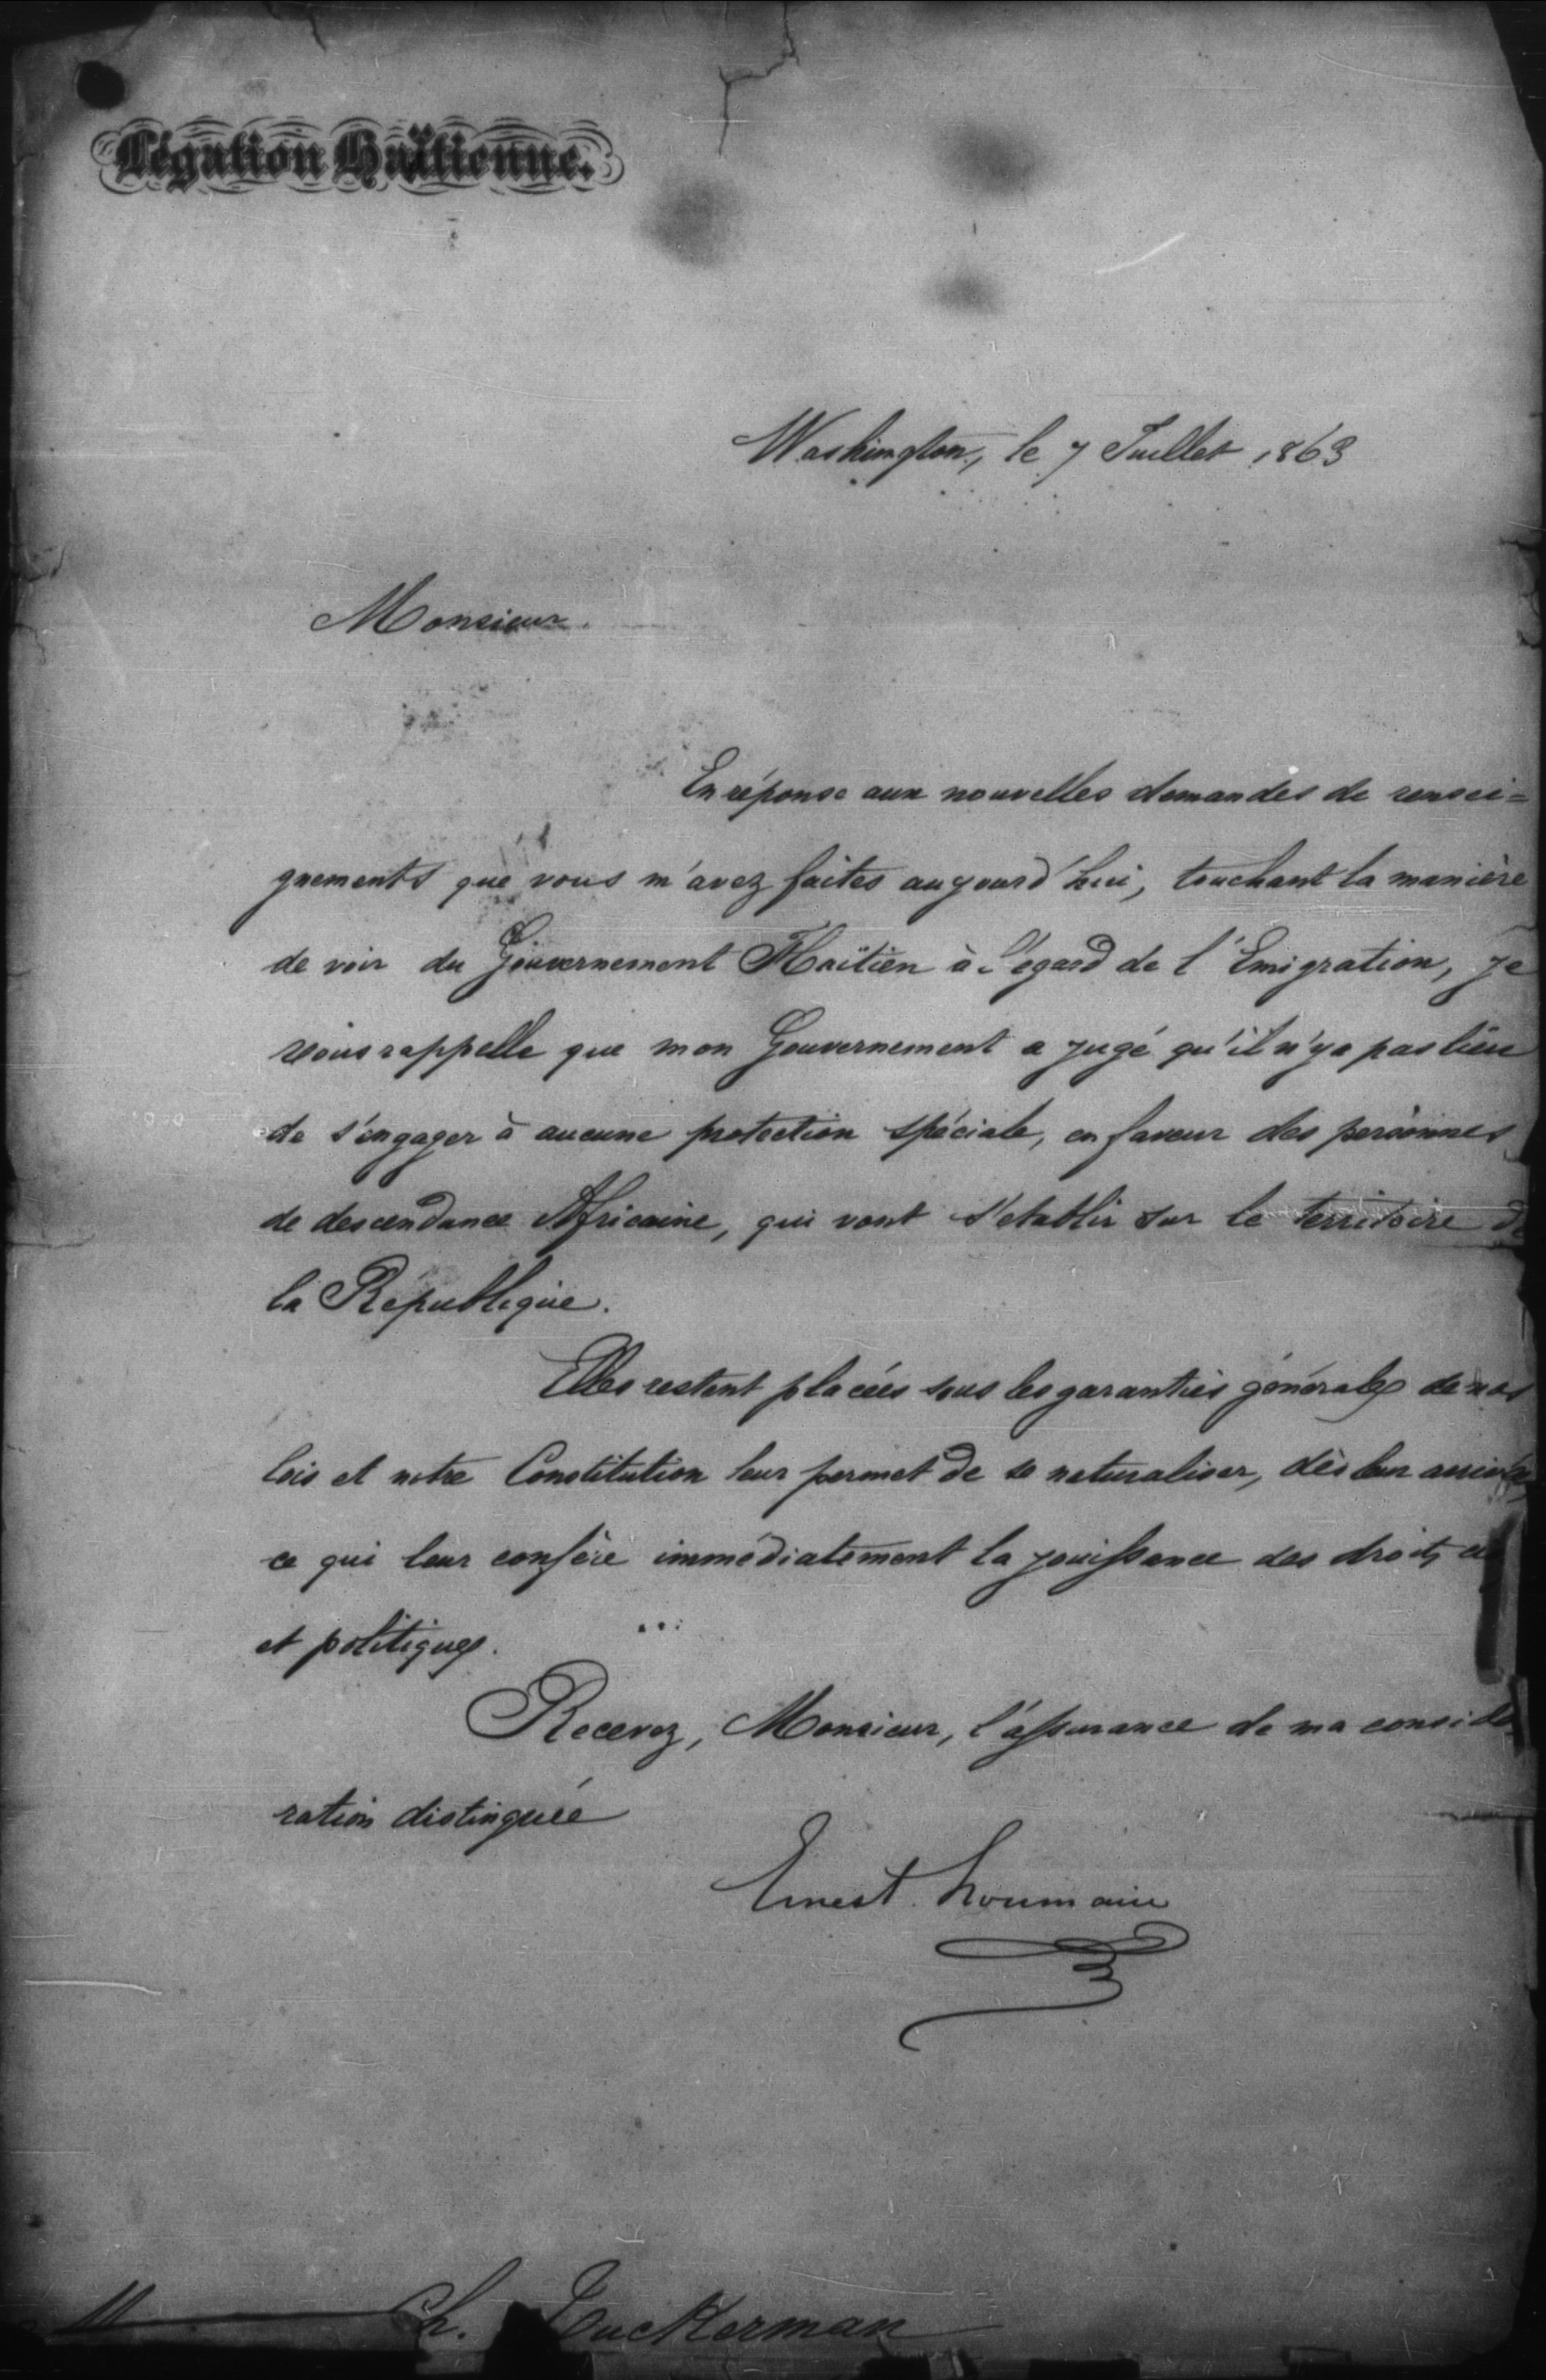 Légation Haïtienne.
Washington, le 7 Juillet 1863
Monsieur.
En réponse aux nouvelles demandes de rensei=
gnements que vous m'avez faites aujourd'hui, touchant la manière
de voir du Gouvernement Haïtien à l'egard de l'Emigration, je
vous rappelle que mon Gouvernement a jugé qu'il n'y a pas lieu
de s'engager à aucune protection spéciale, en faveur des personnes
de descendance Africaine, qui vont s'etablir sur le territoire de
la République.
Elles restent placées sous les garanties générales de nos
lois et notre Constitution leur permet de se naturaliser, dès leur arrivée,
ce qui leur confère immédiatement la jouissance des droits
et politiques.
Recevez, Monsieur, l'assurance de ma considé
ration distinguée
Ernest Roumain
M Ch. Tuckerman